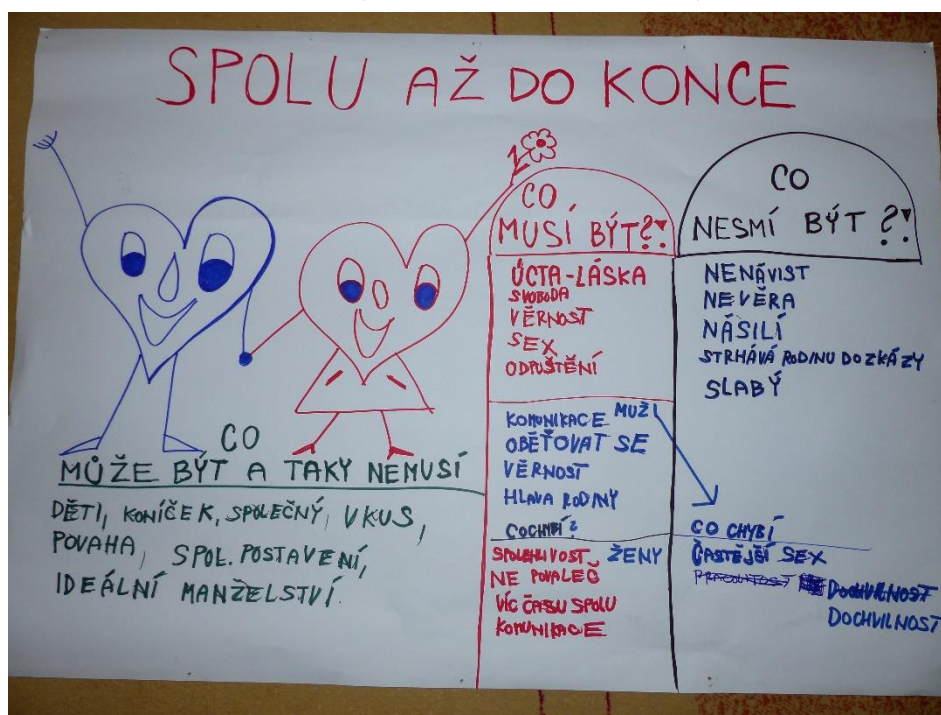 SPOLU AŽ DO KONCE
CO
MŮŽE BÝT A TAKY NEMUSÍ
DĚTI, KONÍČEK, SPOLEČNÝ, VKUS,
POVAHA, SPOL. POSTAVENÍ,
IDEÁLNÍ MANŽELSTVÍ.
CO
MUSÍ BÝT?!
ÚCTA-LÁSKA
SVOBODA
VĚRNOST
SEX
ODPUŠTĚNÍ
KOMUNIKACE MUŽI
OBĚŤOVAT SE
VĚRNOST
HLAVA RODINY
CO CHYBÍ?
SPOLEHLIVOST ŽENY
NE POVALEČ
VÍC ČASU SPOLU
KOMUNIKACE
CO
NESMÍ BÝT?!
NENÁVIST
NEVĚRA
NÁSILÍ
STRHÁVÁ RODINU DO ZKÁZY
SLABÝ
CO CHYBÍ
ČASTĚJŠÍ SEX
DOCHVILNOST
DOCHVILNOST